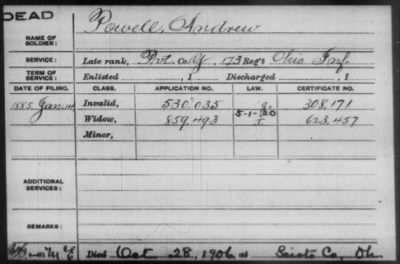 DEAD
NAME OF SOLDIER: Powell, Andrew
SERVICE: Late rank, Pvt. Co. G, 173 Reg't Ohio Inf.
TERM OF SERVICE: Enlisted , 1 Discharged , 1
DATE OF FILING. CLASS. APPLICATION NO. LAW. CERTIFICATE NO.
1885 Jan. Invalid, 530.035 308,171
5-1-20
Widow, 859,493 623,457
Minor,
ADDITIONAL SERVICES:
REMARKS:
Died Oct 28, 1906, at Scioto Co., Oh.